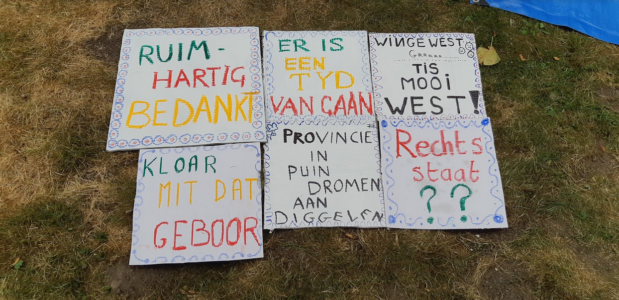 RUIM-
HARTIG
BEDANKT
ER IS
EEN
TYD
VAN GAAN
WINGEWEST
Grrr....
TIS
MOOI
WEST!
KLOAR
MIT DAT
GEBOOR
PROVINCIE
IN
PUIN
DROMEN
AAN
DIGGELEN
Rechts
staat
? ?